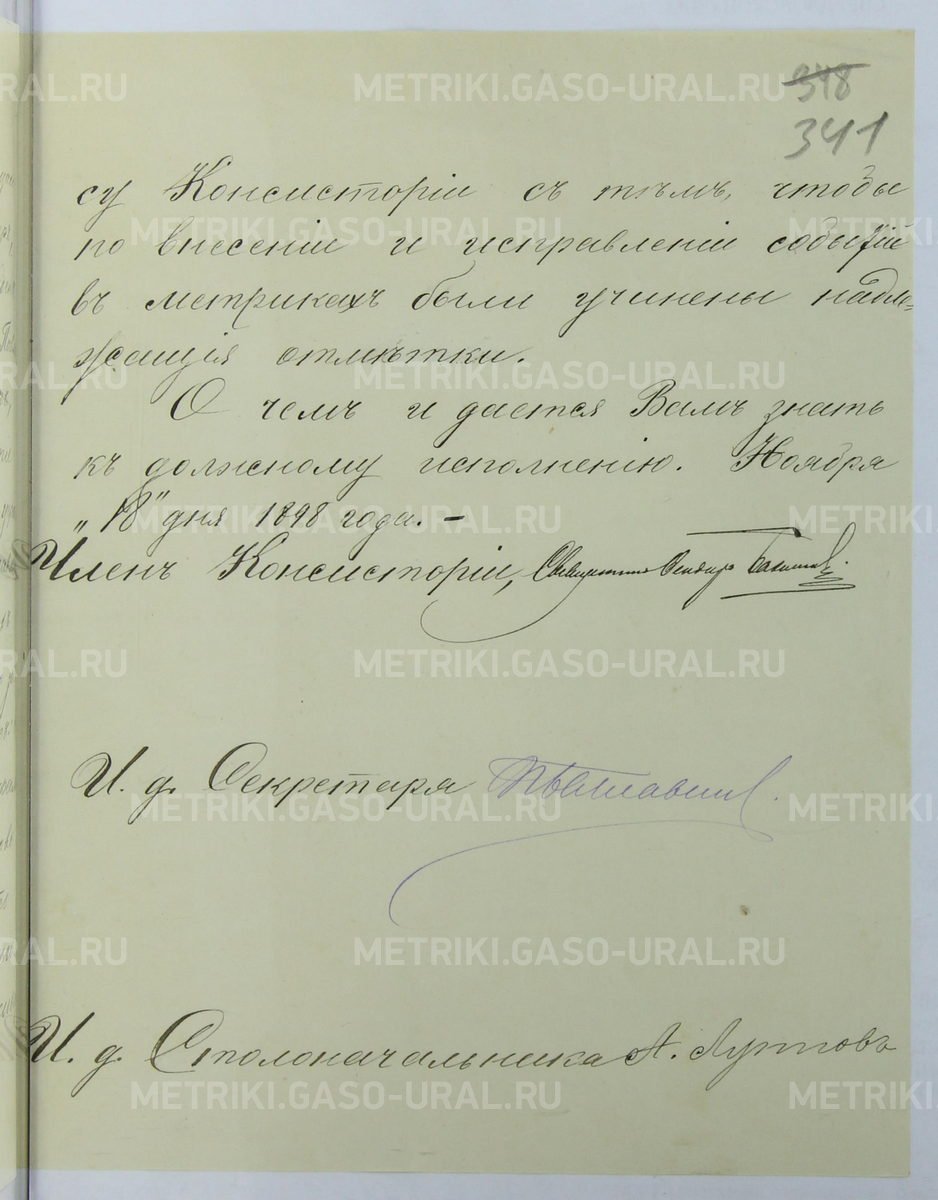 348
341
су Консисторіи съ тѣмъ, чтобы
по внесеніи и исправленіи событій
въ метрикахъ были учинены надле=
жащія отмѣтки.
О чемъ и дается Вамъ знать
къ должному исполненію. Ноября
„18" дня 1898 года. –
Членъ Консисторіи, Священникъ
И. д. Секретаря
И. д. Столоначальника А. Лупповъ
METRIKI.GASO-URAL.RU